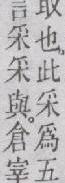 取也此采為五
言采采與。倉宰